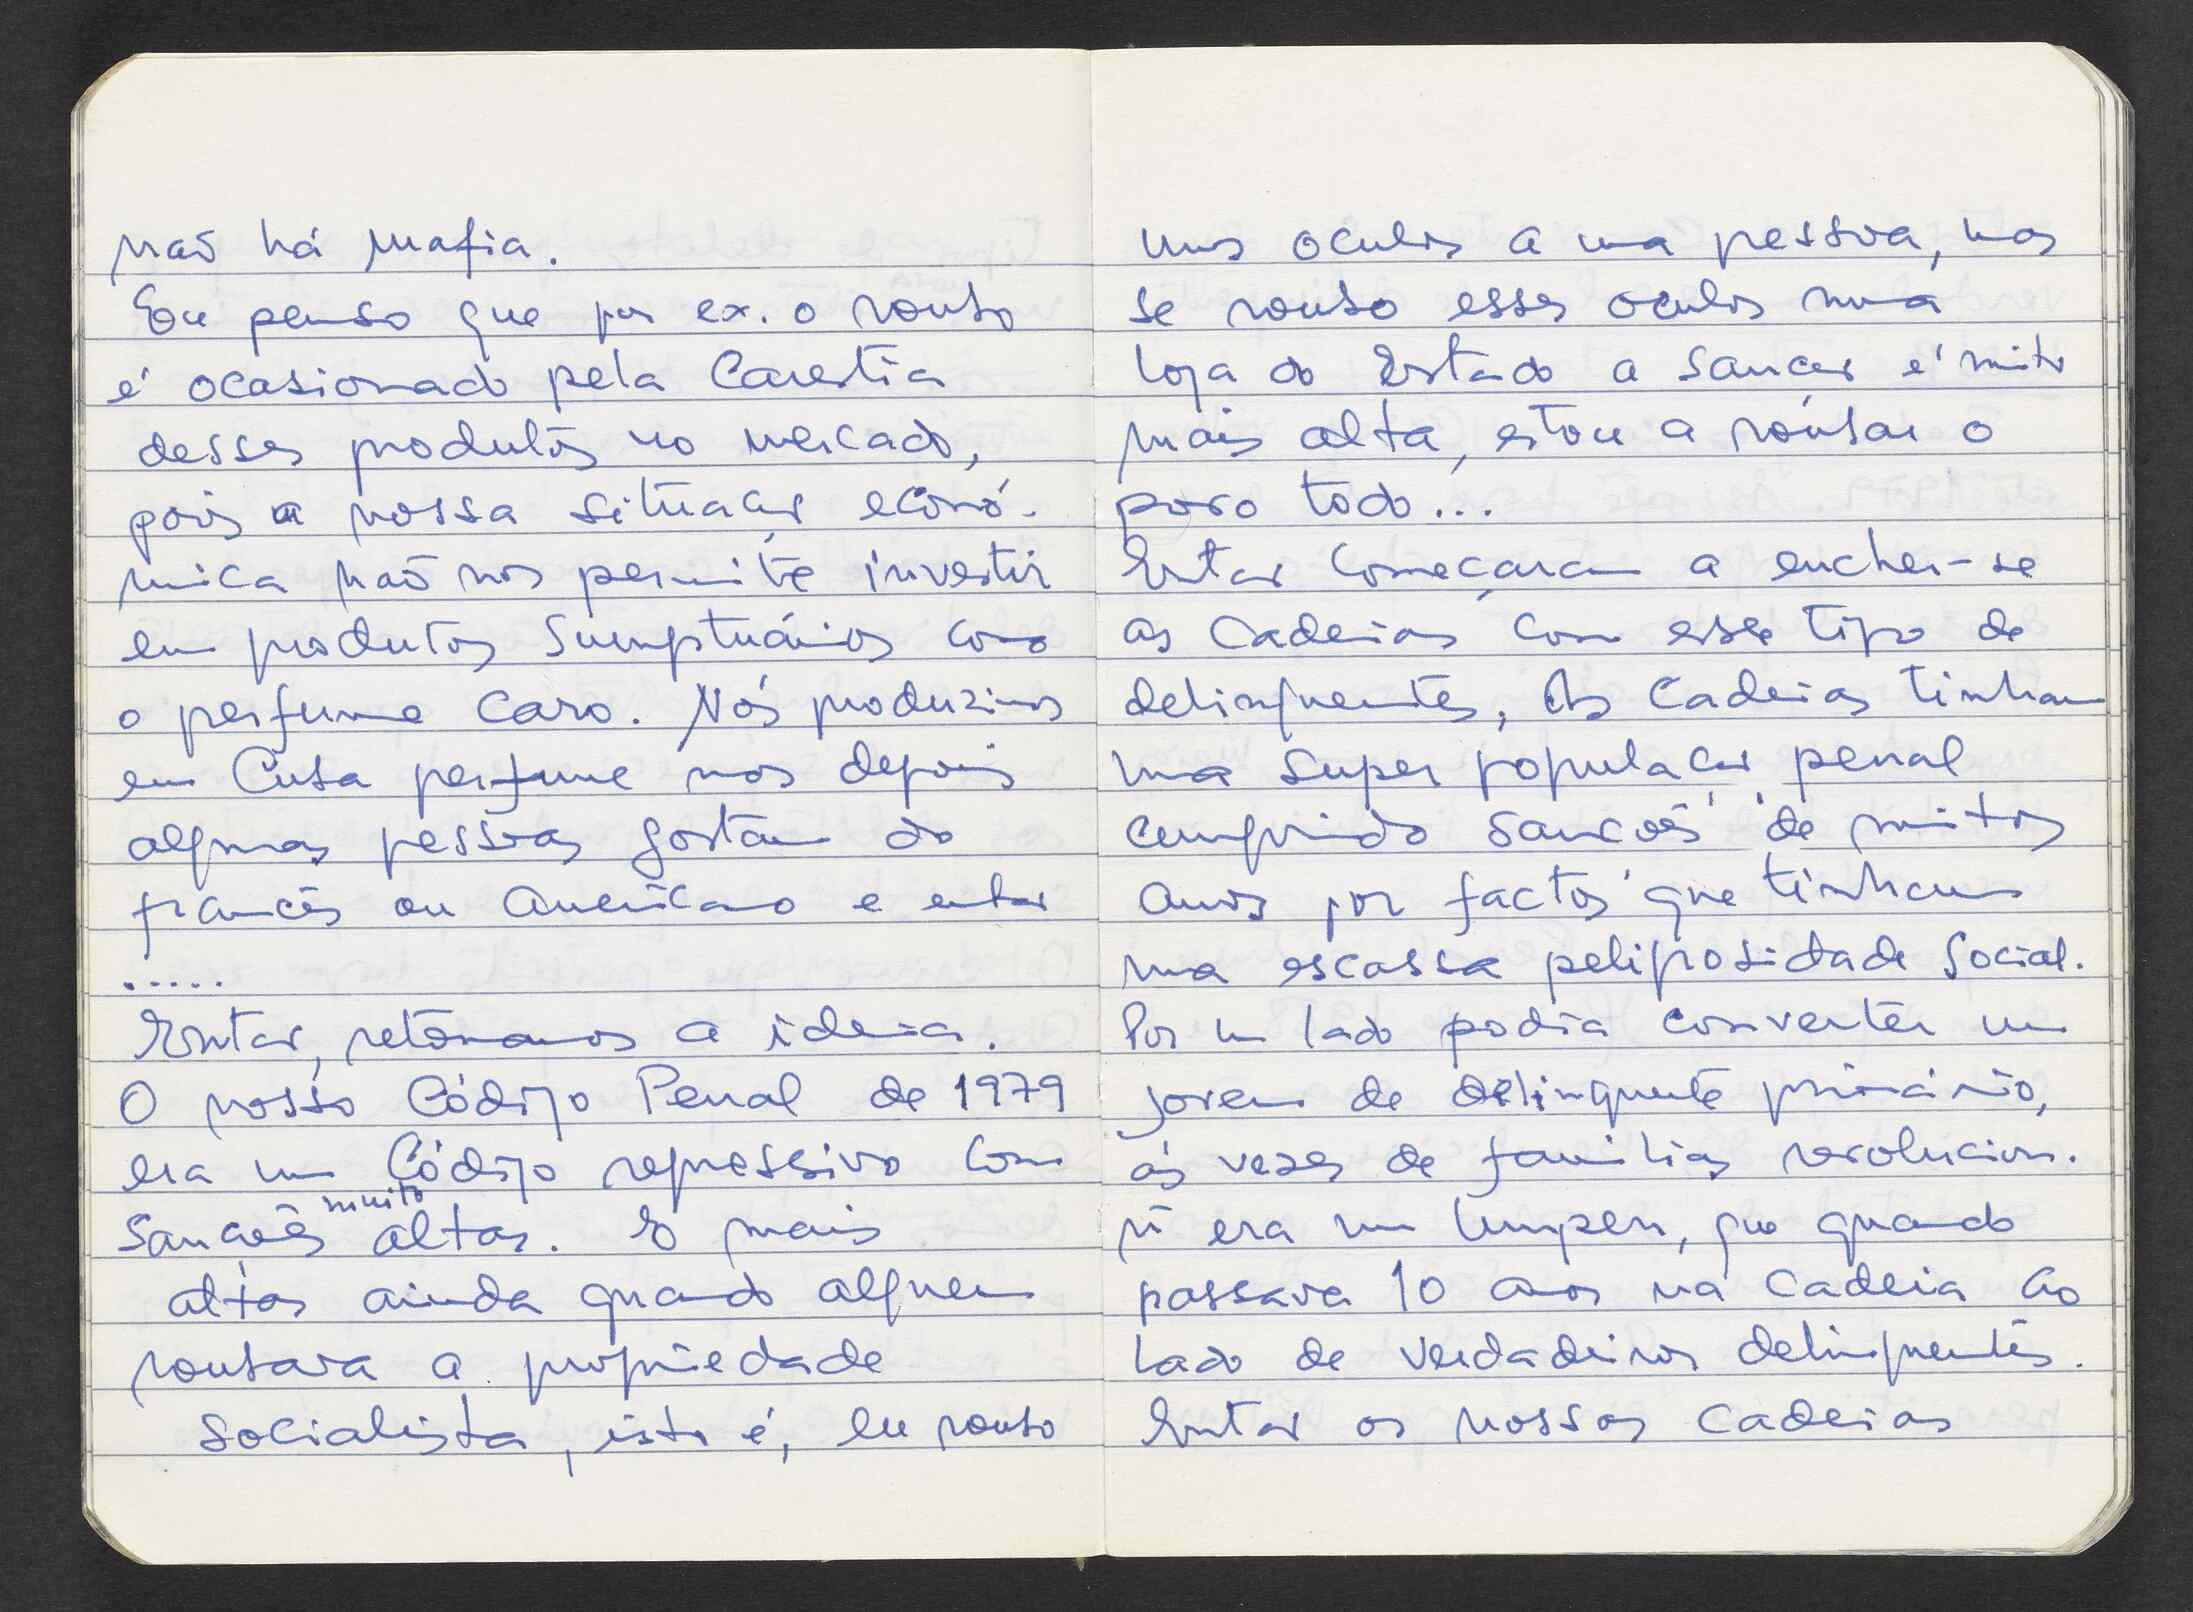 não há mafia.
Eu penso que por ex. o roubo
é ocasionado pela carestia
desses produtos no mercado,
pois a nossa situação econó-
mica não nos permite investir
em produtos sumptuários como
o perfume caro. Nós produzimos
em Cuba perfume mas depois
algumas pessoas gostam do
francês ou americano e então
.....
Então, retomamos a ideia.
O nosso Código Penal de 1979
era um Código repressivo com
sanções muito altas. E mais
altas ainda quando alguem
roubava a propriedade
socialista, isto é, eu roubo
uns oculos a uma pessoa, mas
se roubo esses oculos numa
loja do Estado a sanção é muito
mais alta, estou a roubar o
povo todo...
Então começaram a encher-se
as cadeias com esse tipo de
delinquentes, As cadeias tinham
uma super população penal
cumprindo sanções de muitos
anos por factos que tinham
uma escassa peligrosidade social.
Por um lado podia converter um
jovem de delinquente primário,
ás vezes de familias revolucion.
ñ era um lumpen, que quando
passava 10 anos na cadeia ao
lado de verdadeiros delinquentes.
Então as nossas cadeias